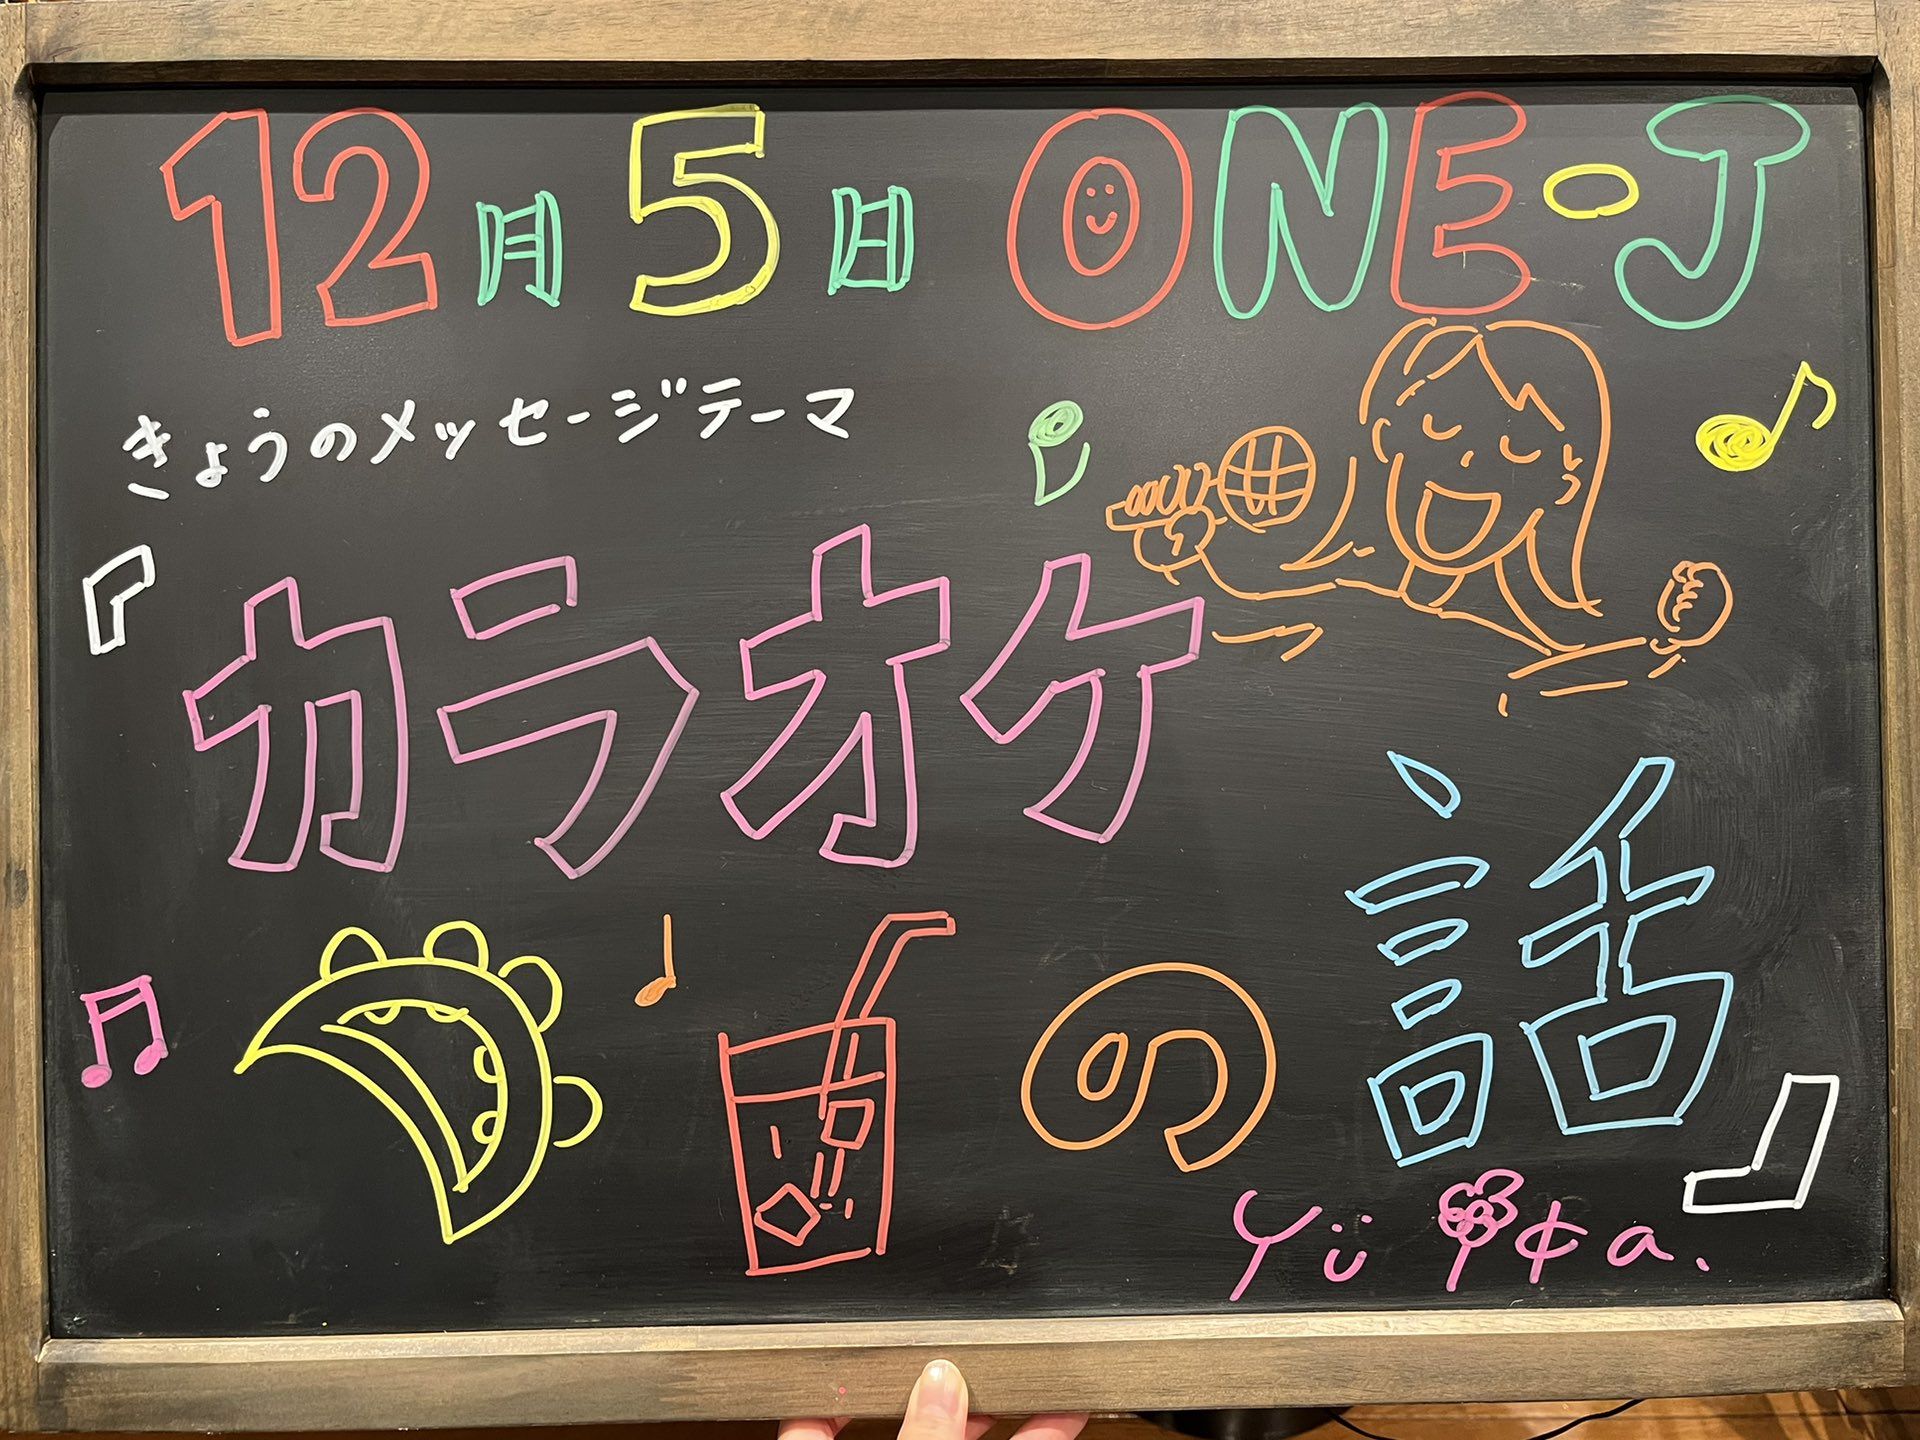 12月5日 ONE-J
きょうのメッセージテーマ
『カラオケ
の話』